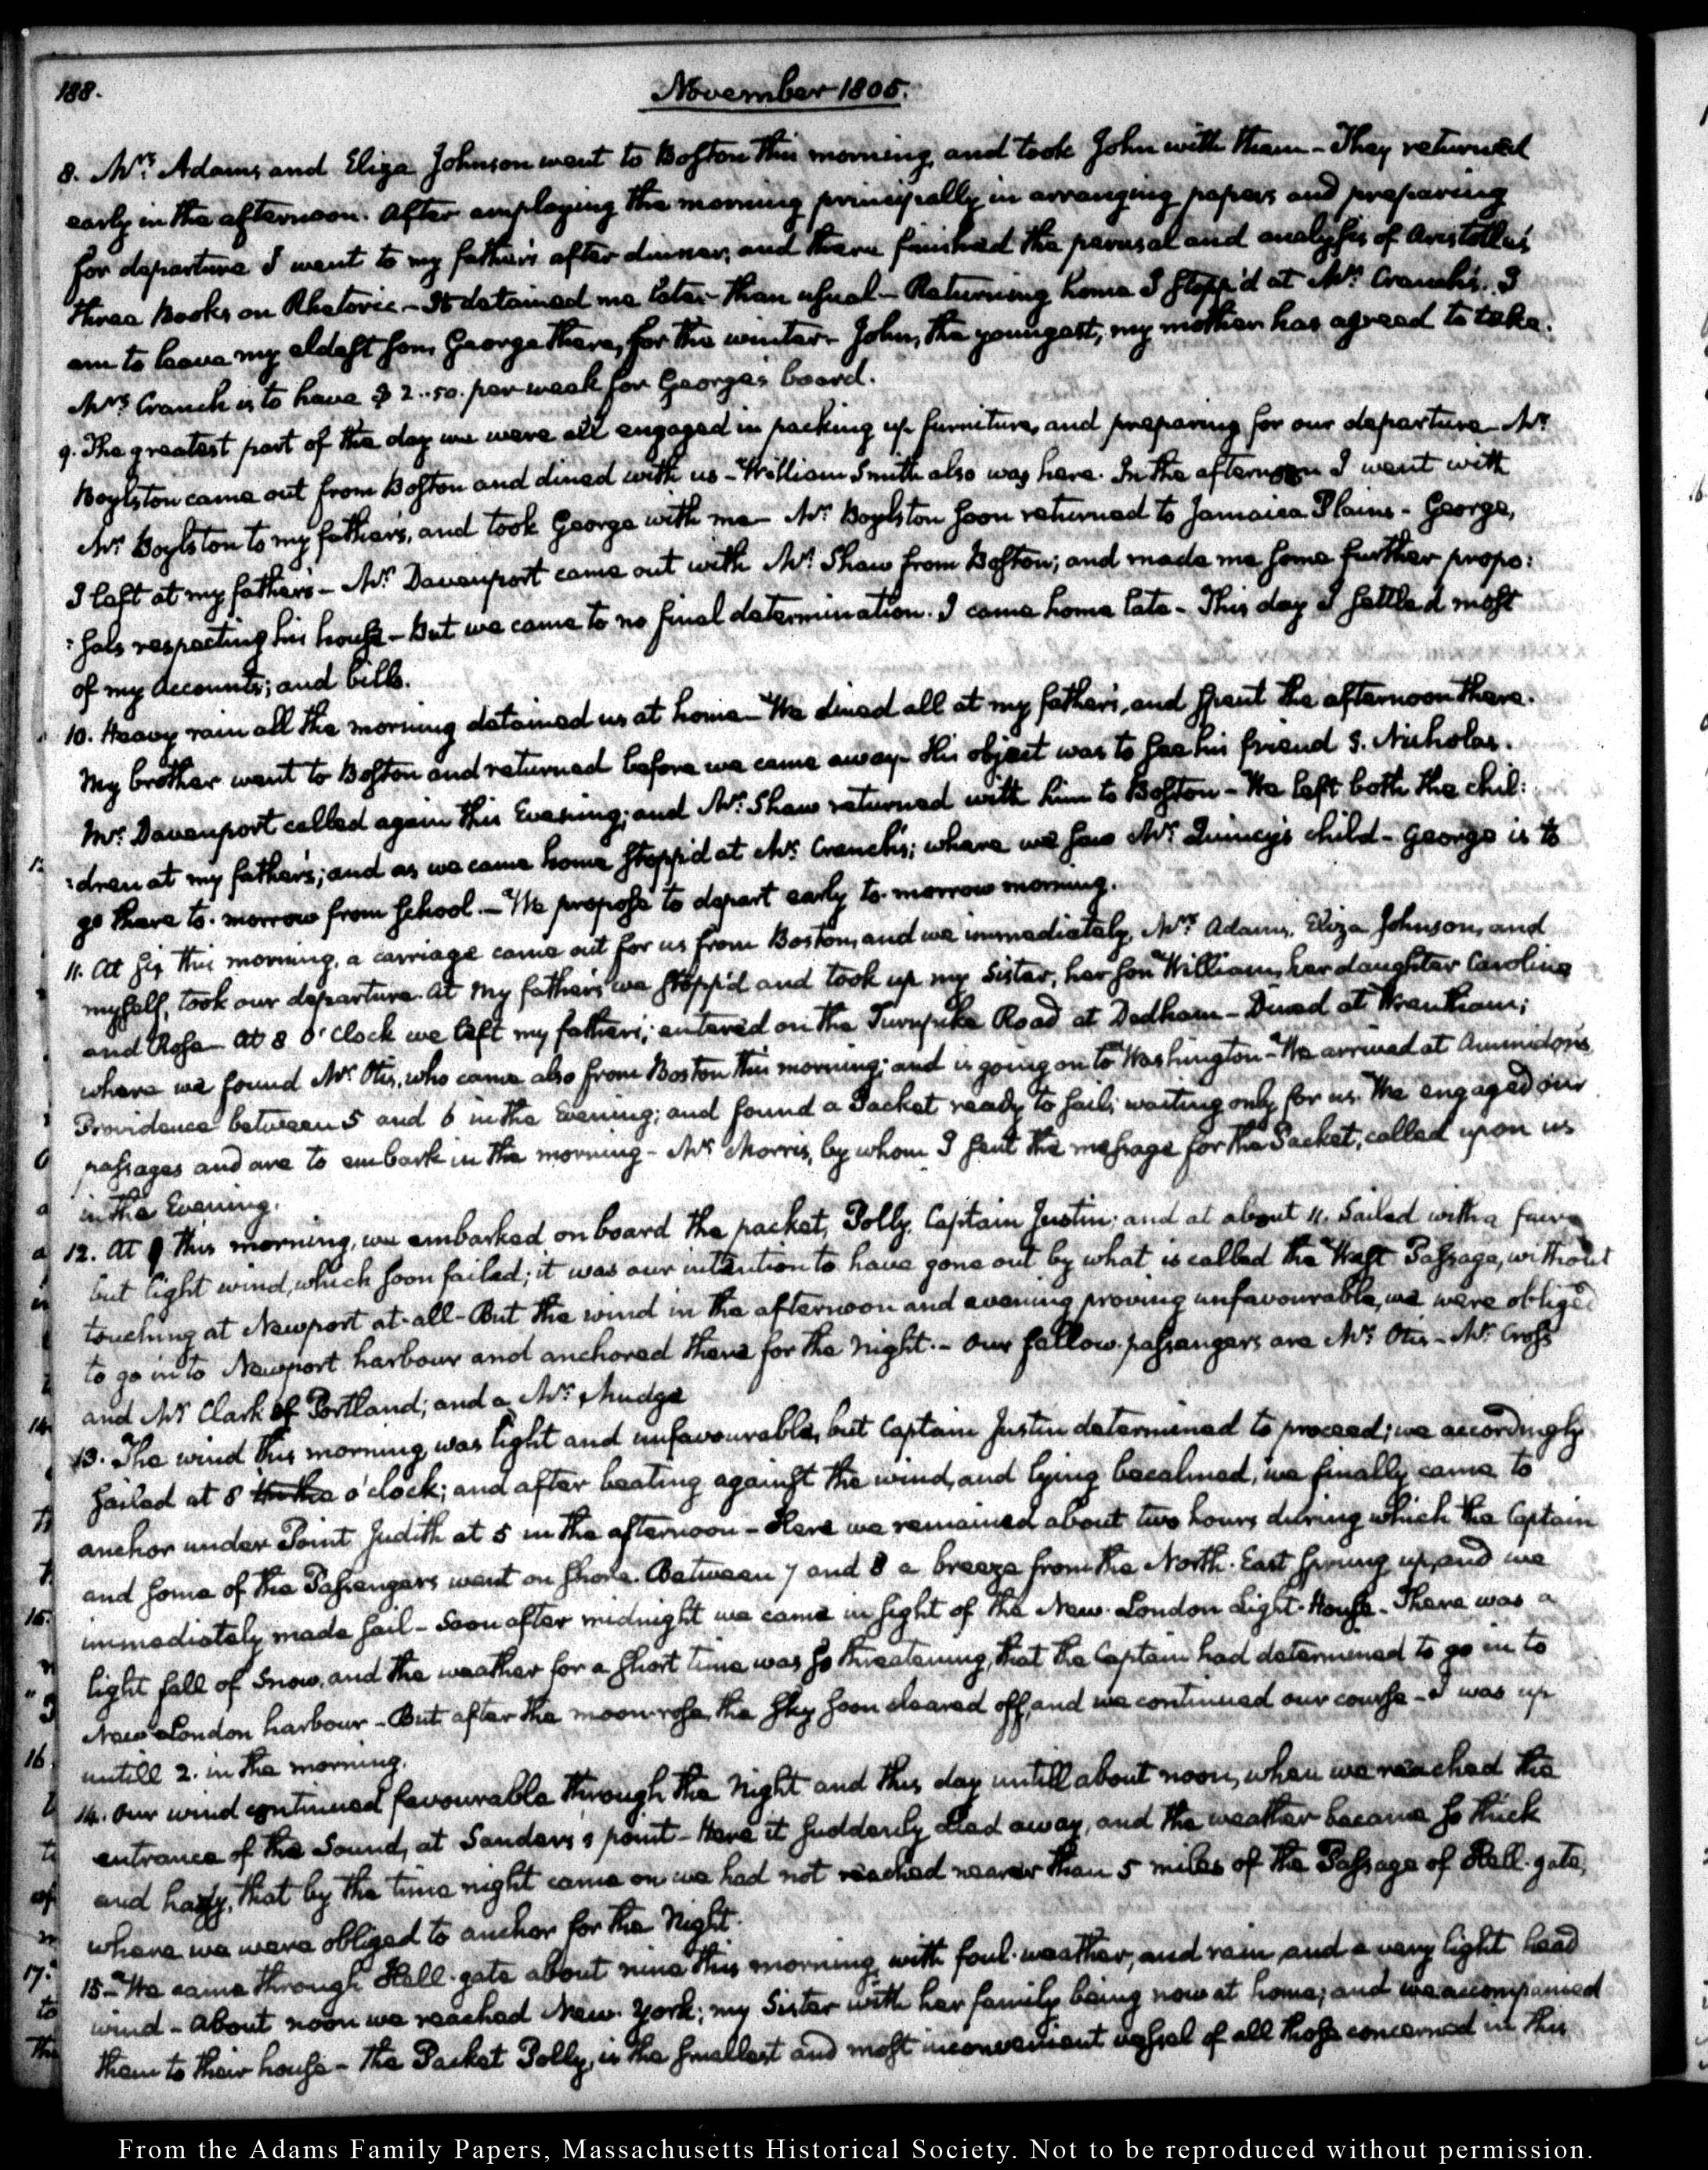 188.
November 1805.
8. Mrs. Adams and Eliza Johnson went to Boston this morning, and took John with them - They returned
early in the afternoon. After employing the morning principally in arranging papers and preparing
for departure I went to my father's after dinner, and there finished the perusal and analysis of Aristotle's
three Books on Rhetoric - It detained me later than usual - Returning home I stopp'd at Mr. Cranch's. I
am to leave my eldest son, George there, for the winter - John, the youngest, my mother has agreed to take.
Mrs. Cranch is to have $ 2..50. per week for George's board.
9. The greatest part of the day we were all engaged in packing up furniture, and preparing for our departure - Mr.
Boylston came out from Boston and dined with us - William Smith also was here. In the afternoon I went with
Mr. Boylston to my father's, and took George with me - Mr. Boylston soon returned to Jamaica Plains - George,
I left at my father's - Mr. Davenport came out with Mr. Shaw from Boston; and made me some further propo:
:sals respecting his house - But we came to no final determination. I came home late - This day I settled most
of my accounts; and bills.
10. Heavy rain all the morning detained us at home - We dined all at my father's, and spent the afternoon there.
My brother went to Boston and returned before we came away - His object was to see his friend S. Nicholas.
Mr. Davenport called again this Evening; and Mr. Shaw returned with him to Boston - We left both the chil:
:dren at my father's; and as we came home stopp'd at Mr. Cranch's; where we saw Mr. Quincy's child - George is to
go there to-morrow from school. - We propose to depart early to-morrow morning.
11. At six this morning, a carriage came out for us from Boston, and we immediately, Mrs. Adams, Eliza Johnson, and
myself, took our departure. At my father's we stopp'd and took up my Sister, her son William, her daughter Caroline
and Rosa - At 8 o'clock we left my father's; entered on the Turnpike Road at Dedham - Dined at Wrentham;
where we found Mr. Otis, who came also from Boston this morning; and is going on to Washington - We arrived at Ammidon's
Providence between 5 and 6 in the Evening; and found a Packet ready to sail; waiting only for us. We engaged our
passages and are to embark in the morning - Mr. Morris, by whom I sent the message for the Packet, called upon us
in the Evening.
12. At 9 this morning, we embarked on board the packet, Polly, Captain Justin; and at about 11. Sailed with a fair
but light wind, which soon failed; it was our intention to have gone out by what is called the West Passage, without
touching at Newport at-all - But the wind in the afternoon and evening proving unfavourable, we were obliged
to go in to Newport harbour and anchored there for the night. - Our fellow-passengers are Mr. Otis - Mr. Cross
and Mr. Clark of Portland; and a Mr. Mudge
13. The wind this morning was light and unfavourable, but Captain Justin determined to proceed; we accordingly
sailed at 8 o'clock; and after beating against the wind, and lying becalmed, we finally came to
anchor under Point Judith at 5 in the afternoon - Here we remained about two hours during which the Captain
and some of the Passengers went on shore. Between 7 and 8 a breeze from the North-East sprung up, and we
immediately made sail - Soon after midnight we came in sight of the New-London Light-House - There was a
light fall of snow, and the weather for a short time was so threatening, that the Captain had determined to go in to
New London harbour - But after the moon-rose, the sky soon cleared off, and we continued our course - I was up
untill 2. in the morning.
14. Our wind continued favourable through the night and this day untill about noon, when we reached the
entrance of the Sound, at Sanders's point - Here it suddenly died away, and the weather became so thick
and hazy, that by the time night came on we had not reached nearer than 5 miles of the Passage of Hell-gate,
where we were obliged to anchor for the Night.
15. We came through Hell-gate about nine this morning, with foul-weather, and rain, and a very light head
wind - About noon we reached New-York; my Sister with her family being now at home; and we accompanied
them to their house - The Packet Polly, is the smallest and most inconvenient vessel of all those concerned in this
From the Adams Family Papers, Massachusetts Historical Society. Not to be reproduced without permission.